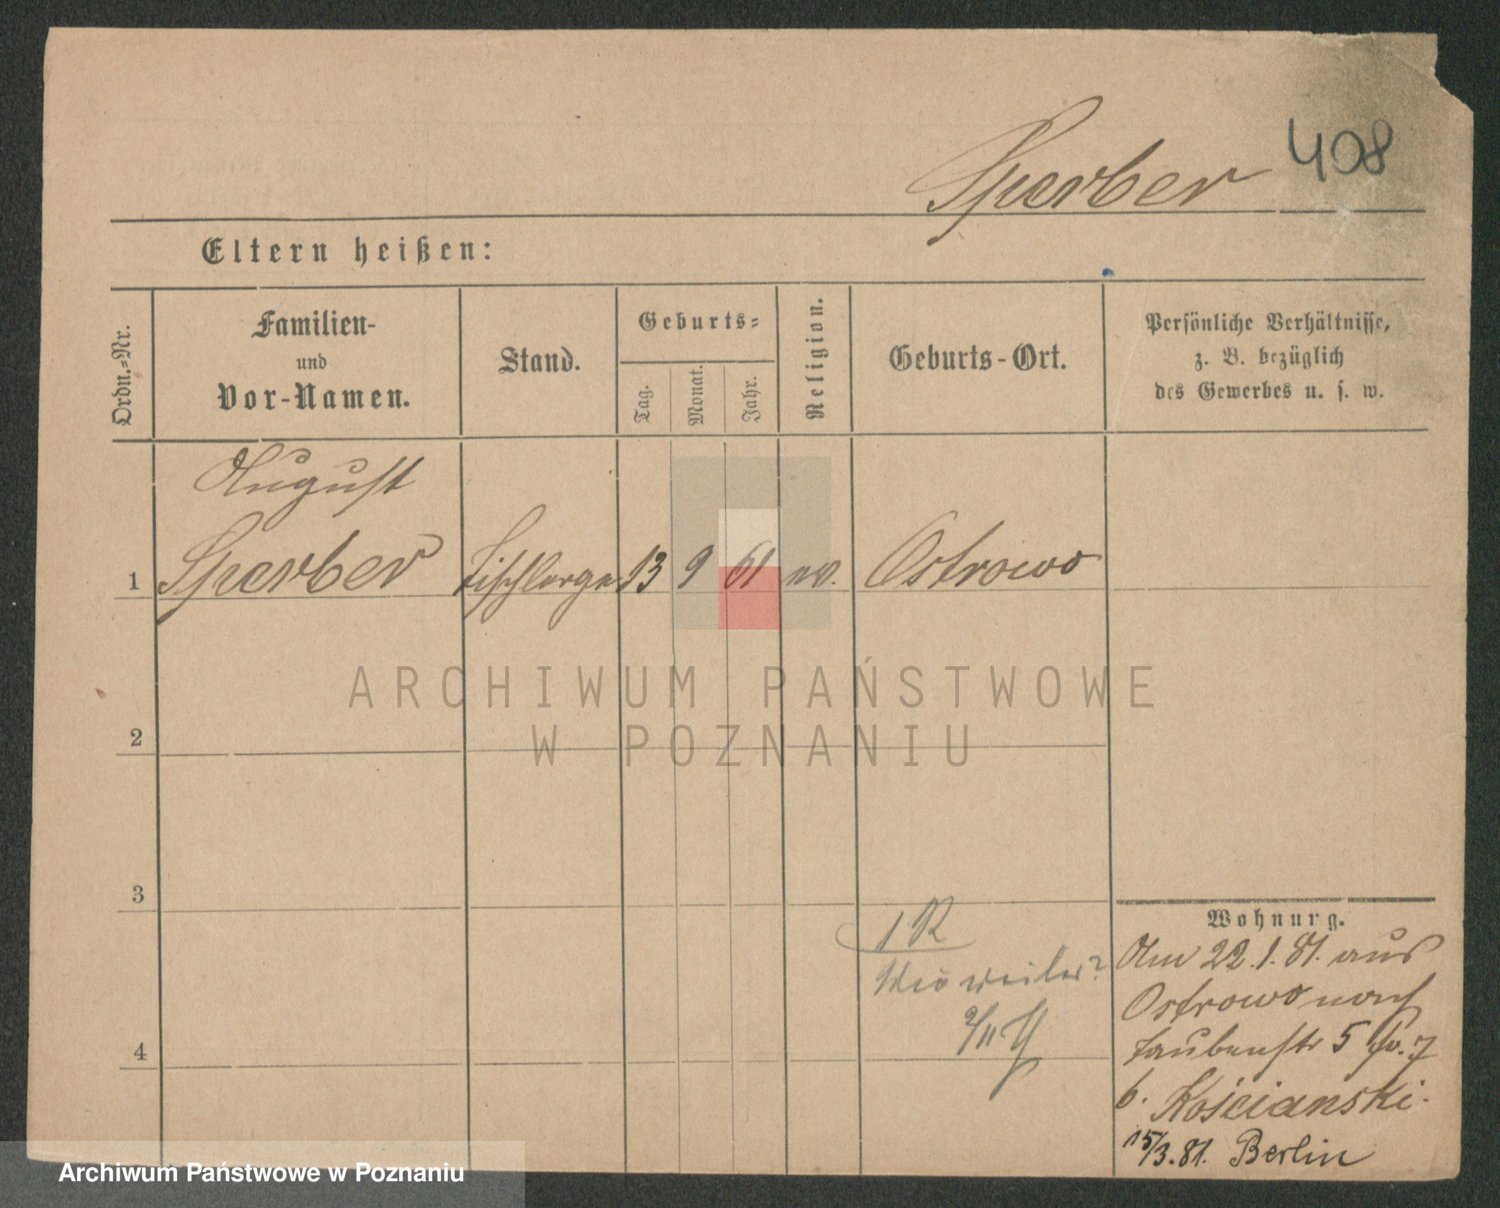 408
Sperber
Eltern heißen:
Ordn.-Nr.
Familien-
und
Vor-Namen.
Stand.
Geburts-
Tag.
Monat.
Jahr.
Religion.
Geburts-Ort.
Persönliche Verhältnisse,
z. B. bezüglich
des Gewerbes u. s. w.
August
1 Sperber Tischlerge 13 9 61 ev. Ostrowo
ARCHIWUM PAŃSTWOWE
W POZNANIU
2
3
4
1 R
Wo weiter?
Wohnung.
Am 22.1.81. aus
Ostrowo nach
Taubenstr 5
b. Kościanski.
15/3.81. Berlin
Archiwum Państwowe w Poznaniu